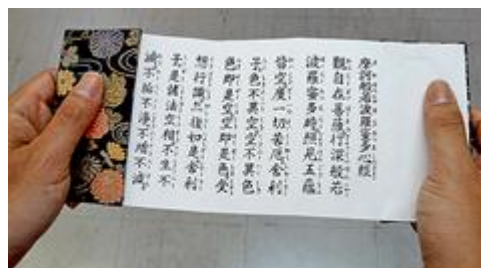 摩訶般若波羅蜜多心經
觀自在菩薩行深般若
波羅蜜多時照見五蘊
皆空度一切苦厄舍利
子色不異空空不異色
色即是空空即是色受
想行識亦復如是舍利
子是諸法空相不生不
滅不垢不淨不增不減